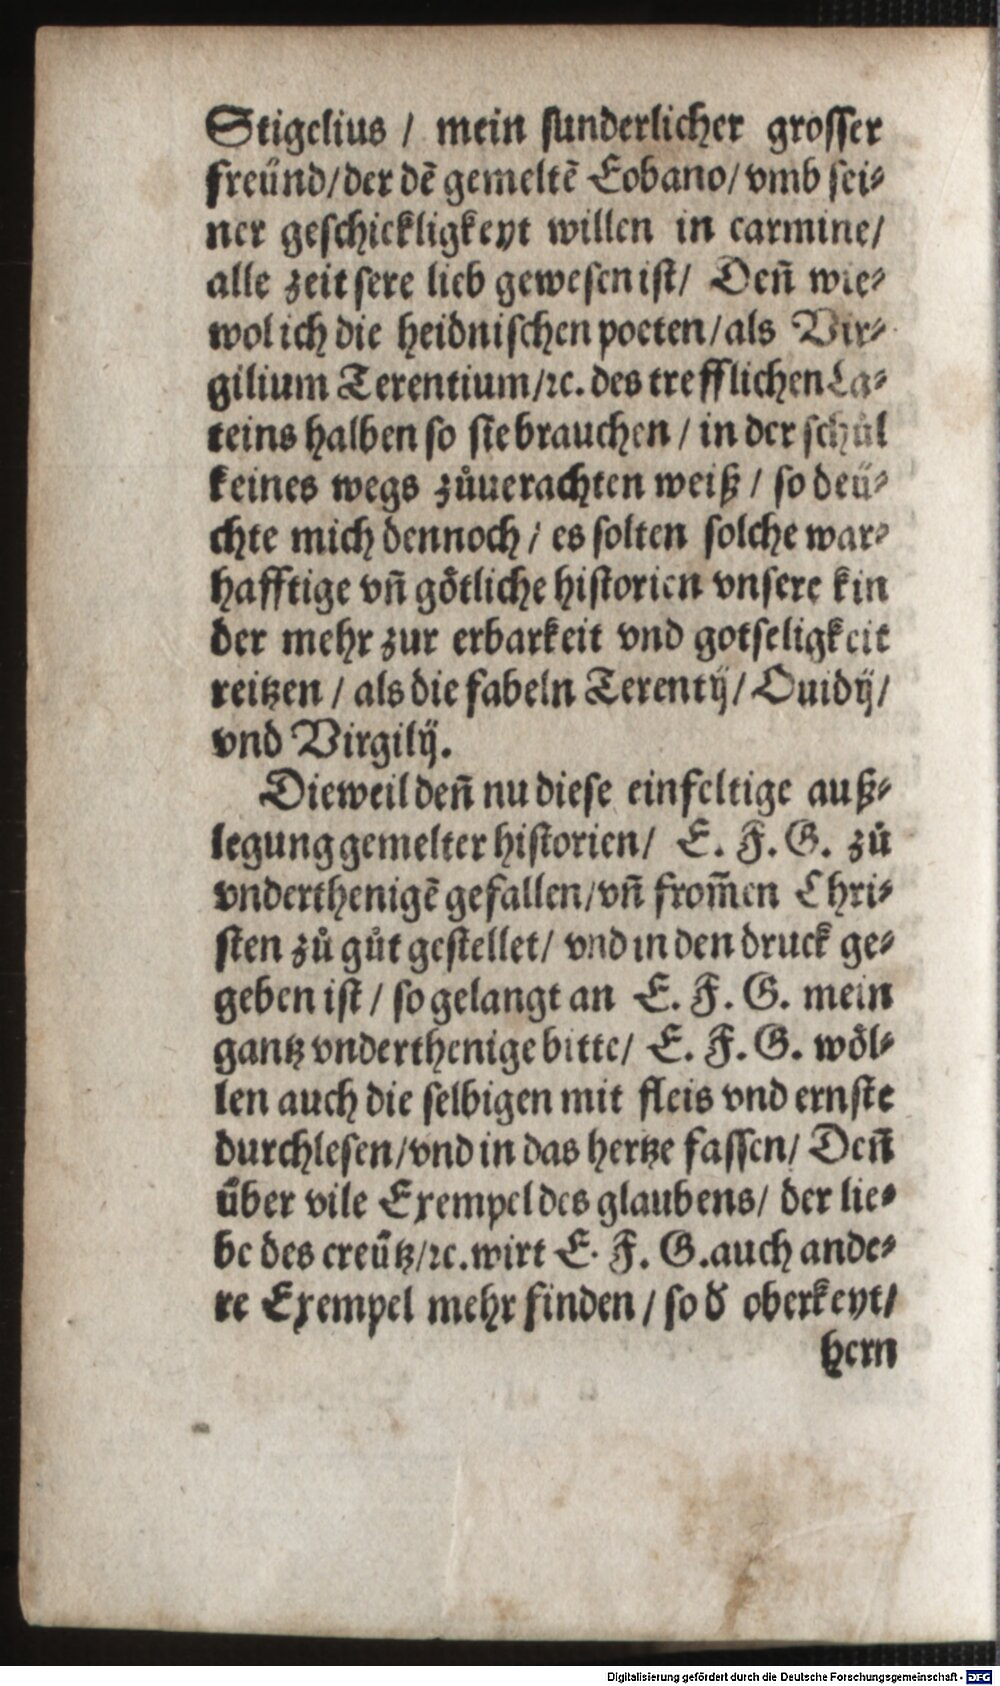 Stigelius / mein sunderlicher grosser
freünd/der dẽ gemeltẽ Eobano/vmb sei⸗
ner geschickligkeyt willen in carmine/
alle zeit sere lieb gewesen ist/ Deñ wie⸗
wol ich die heidnischen poeten/als Vir⸗
gilium Terentium/ꝛc. des trefflichen La⸗
teins halben so sie brauchen / in der schůl
keines wegs zůuerachten weiß / so deü⸗
chte mich dennoch / es solten solche war⸗
hafftige vñ götliche historien vnsere kin
der mehr zur erbarkeit vnd gotseligkeit
reitzen / als die fabeln Terentij/ Ouidij/
vnd Virgilij.
Dieweil deñ nu diese einfeltige auß⸗
legung gemelter historien/ E. F. G. zů
vnderthenigẽ gefallen/vñ from̃en Chri⸗
sten zů gůt gestellet/ vnd in den druck ge⸗
geben ist / so gelangt an E. F. G. mein
gantz vnderthenige bitte/ E. F. G. wöl⸗
len auch die selbigen mit fleis vnd ernste
durchlesen/vnd in das hertze fassen/ Deñ
über vile Exempel des glaubens/ der lie⸗
be des creütz/ꝛc. wirt E. F. G. auch ande⸗
re Exempel mehr finden / so d̓ oberkeyt/
hern
Digitalisierung gefördert durch die Deutsche Forschungsgemeinschaft - DFG